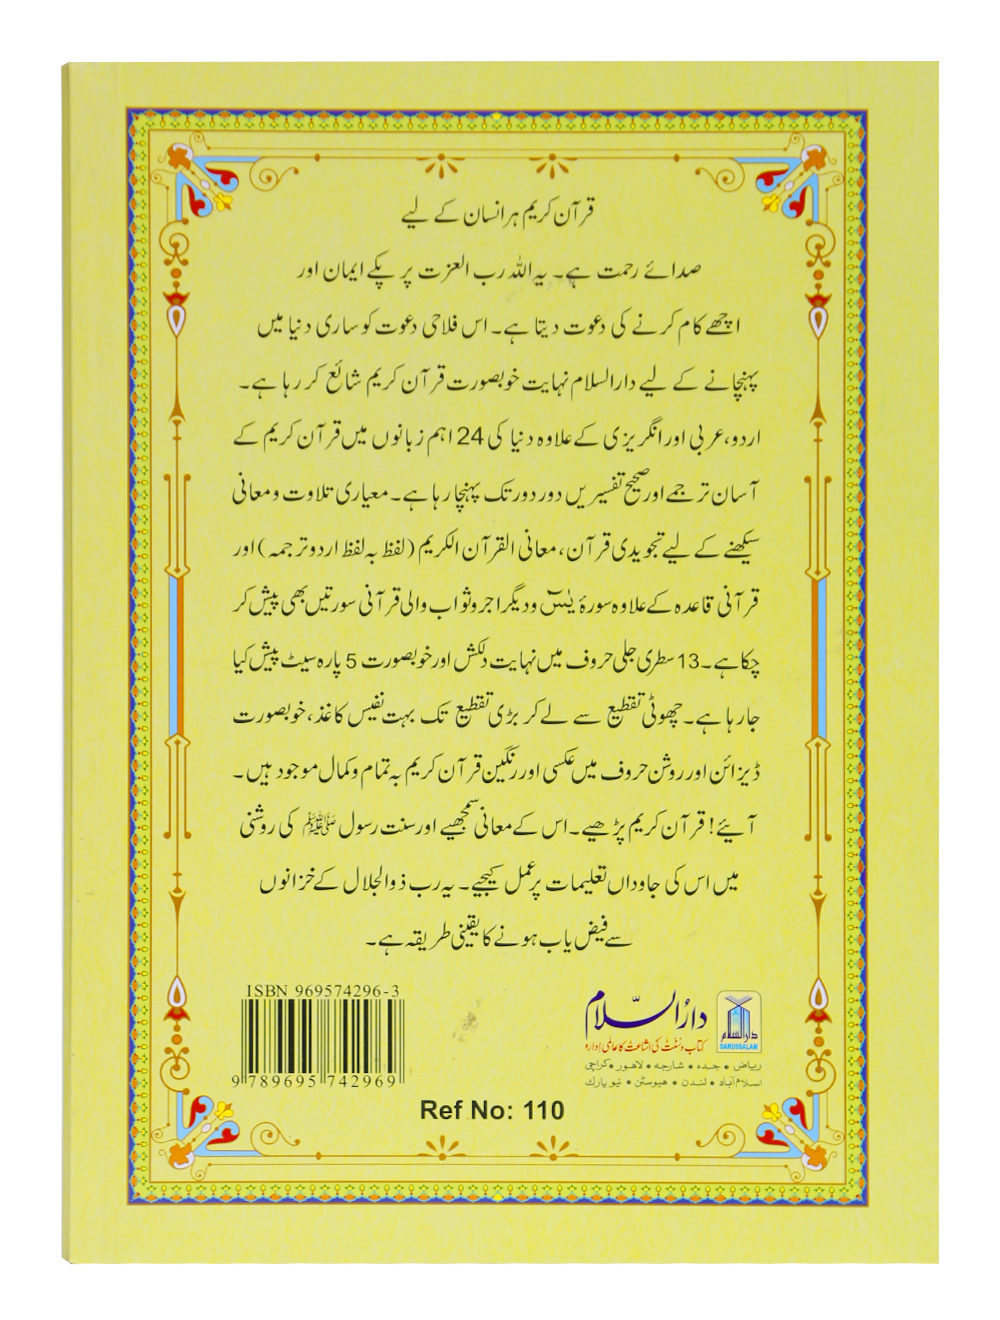 قرآن کریم ہر انسان کے لیے
صدائے رحمت ہے۔ یہ اللہ رب العزت پر پکے ایمان اور
اچھے کام کرنے کی دعوت دیتا ہے۔ اس فلاحی دعوت کو ساری دنیا میں
پہنچانے کے لیے دارالسلام نہایت خوبصورت قرآن کریم شائع کر رہا ہے۔
اردو، عربی اور انگریزی کے علاوہ دنیا کی 24 اہم زبانوں میں قرآن کریم کے
آسان ترجمے اور صحیح تفسیریں دور دور تک پہنچا رہا ہے۔ معیاری تلاوت و معانی
سیکھنے کے لیے تجویدی قرآن، معانی القرآن الکریم (لفظ بہ لفظ اردو ترجمہ) اور
قرآنی قاعدہ کے علاوہ سورۂ یٰسٓ و دیگر اجر و ثواب والی قرآنی سورتیں بھی پیش کر
چکا ہے۔ 13 سطری جلی حروف میں نہایت دلکش اور خوبصورت 5 پارہ سیٹ پیش کیا
جا رہا ہے۔ چھوٹی تقطیع سے لے کر بڑی تقطیع تک بہت نفیس کاغذ، خوبصورت
ڈیزائن اور روشن حروف میں عکسی اور رنگین قرآن کریم بہ تمام و کمال موجود ہیں۔
آیئے! قرآن کریم پڑھیے۔ اس کے معانی سمجھیے اور سنت رسول ﷺ کی روشنی
میں اس کی جاوداں تعلیمات پر عمل کیجیے۔ یہ رب ذوالجلال کے خزانوں
سے فیض یاب ہونے کا یقینی طریقہ ہے۔
ISBN 969574296-3
9 789695 742969
دارُالسّلام
کتاب و سُنّت کی اشاعت کا عالمی اِدارہ
ریاض • جدہ • شارجہ • لاہور • کراچی
اسلام آباد • لندن • ھیوسٹن • نیو یارک
دارالسلام
DARUSSALAM
Ref No: 110